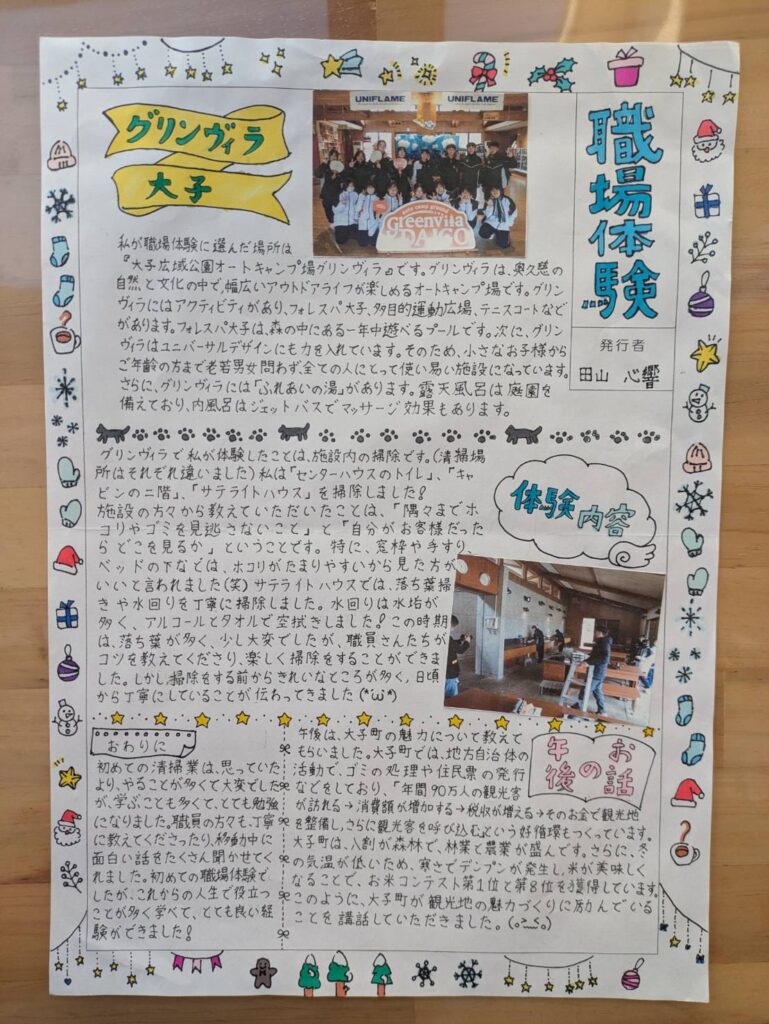 職場体験
発行者
田山 心響
UNIFLAME
UNIFLAME
auto camp ground
Greenvila
DAIGO
グリンヴィラ
大子
私が職場体験に選んだ場所は
『大子広域公園オートキャンプ場グリンヴィラ』です。グリンヴィラは、奥久慈の
自然と文化の中で、幅広いアウトドアライフが楽しめるオートキャンプ場です。グリン
ヴィラにはアクティビティがあり、フォレスパ大子、多目的運動広場、テニスコートなど
があります。フォレスパ大子は、森の中にある一年中遊べるプールです。次に、グリン
ヴィラはユニバーサルデザインにも力を入れています。そのため、小さなお子様から
ご年齢の方まで老若男女問わず、全ての人にとって使い易い施設になっています。
さらに、グリンヴィラには「ふれあいの湯」があります。露天風呂は庭園を
備えており、内風呂はジェットバスでマッサージ効果もあります。
体験内容
グリンヴィラで私が体験したことは、施設内の掃除です。(清掃場
所はそれぞれ違いました)私は「センターハウスのトイレ」、「キャ
ビンの二階」、「サテライトハウス」を掃除しました!
施設の方々から教えていただいたことは、「隅々までホ
コリやゴミを見逃さないこと」と「自分がお客様だった
らどこを見るか」ということです。特に、窓枠や手すり、
ベッドの下などは、ホコリがたまりやすいから見た方が
いいと言われました(笑)サテライトハウスでは、落ち葉掃
きや水回りを丁寧に掃除しました。水回りは水垢が
多く、アルコールとタオルで空拭きしました!この時期
は、落ち葉が多く、少し大変でしたが、職員さんたちが
コツを教えてくださり、楽しく掃除をすることができま
した。しかし、掃除をする前からきれいなところが多く、日頃
から丁寧にしていることが伝わってきました(*'ω'*)
午後のお話
午後は、大子町の魅力について教えて
もらいました。大子町では、地方自治体の
活動で、ゴミの処理や住民票の発行
などをしており、「年間90万人の観光客
が訪れる→消費額が増加する→税収が増える→そのお金で観光地
を整備し、さらに観光客を呼び込む」という好循環もつくっています。
大子町は、八割が森林で、林業と農業が盛んです。さらに、冬
の気温が低いため、寒さでデンプンが発生し、米が美味しく
なることで、お米コンテスト第1位と第8位を獲得しています。
このように、大子町が観光地の魅力づくりに励んでいる
ことを講話していただきました。(o>_<o)
おわりに
初めての清掃業は、思っていた
より、やることが多くて大変でした
が、学ぶことも多くて、とても勉強
になりました。職員の方々も、丁寧
に教えてくださったり、移動中に
面白い話をたくさん聞かせてく
れました。初めての職場体験で
したが、これからの人生で役立つ
ことが多く学べて、とても良い経
験ができました!